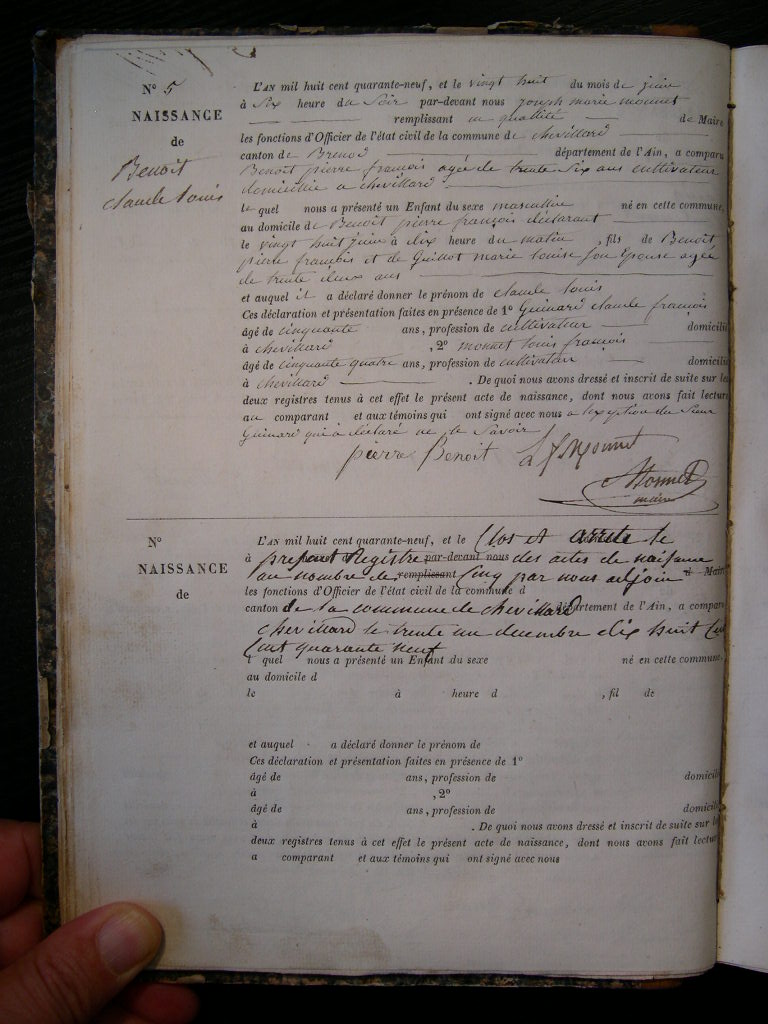 N° 5
NAISSANCE
de
Benoit
claude louis
L'AN mil huit cent quarante-neuf, et le vingt huit du mois de juin
à Six heure du Soir par-devant nous joseph marie monnet
remplissant en qualité de Maire
les fonctions d'Officier de l'état civil de la commune de chevillard
canton de Brenod département de l'Ain, a comparu
Benoit pierre françois agée de trente Six ans cultivateur
domicilie a chevillard
le quel nous a présenté un Enfant du sexe masculin né en cette commune,
au domicile de Benoit pierre françois déclarant
le vingt huit juin à dix heure du matin , fils de Benoit
pierre françois et de Guillot marie louise son Epouse agée
de trente deux ans
et auquel il a déclaré donner le prénom de claude louis
Ces déclaration et présentation faites en présence de 1° Guinard claude françois
âgé de cinquante ans, profession de cultivateur domicilié
à chevillard , 2° monnet louis françois
âgé de cinquante quatre ans, profession de cultivateur domicilié
à chevillard . De quoi nous avons dressé et inscrit de suite sur les
deux registres tenus à cet effet le présent acte de naissance, dont nous avons fait lecture
au comparant et aux témoins qui ont signé avec nous a lexception du Sieur
Guinard qui à déclaré ne le Savoir
pierre Benoit Monnet
Monnet
maire
N°
NAISSANCE
de
L'AN mil huit cent quarante-neuf, et le Clos et arrete le
à present Registre par-devant nous des actes de naissance
au nombre de remplissant Cinq par nous adjoint d Maire
les fonctions d'Officier de l'état civil de la commune d
canton de la commune de chevillard département de l'Ain, a comparu
chevillard le trente un decembre dix huit Cent
Cent quarante neuf
l quel nous a présenté un Enfant du sexe né en cette commune,
au domicile d
le à heure d , fil de
et auquel a déclaré donner le prénom de
Ces déclaration et présentation faites en présence de 1°
âgé de ans, profession de domicilié
à , 2°
âgé de ans, profession de domicilié
à . De quoi nous avons dressé et inscrit de suite sur les
deux registres tenus à cet effet le présent acte de naissance, dont nous avons fait lecture
a comparant et aux témoins qui ont signé avec nous